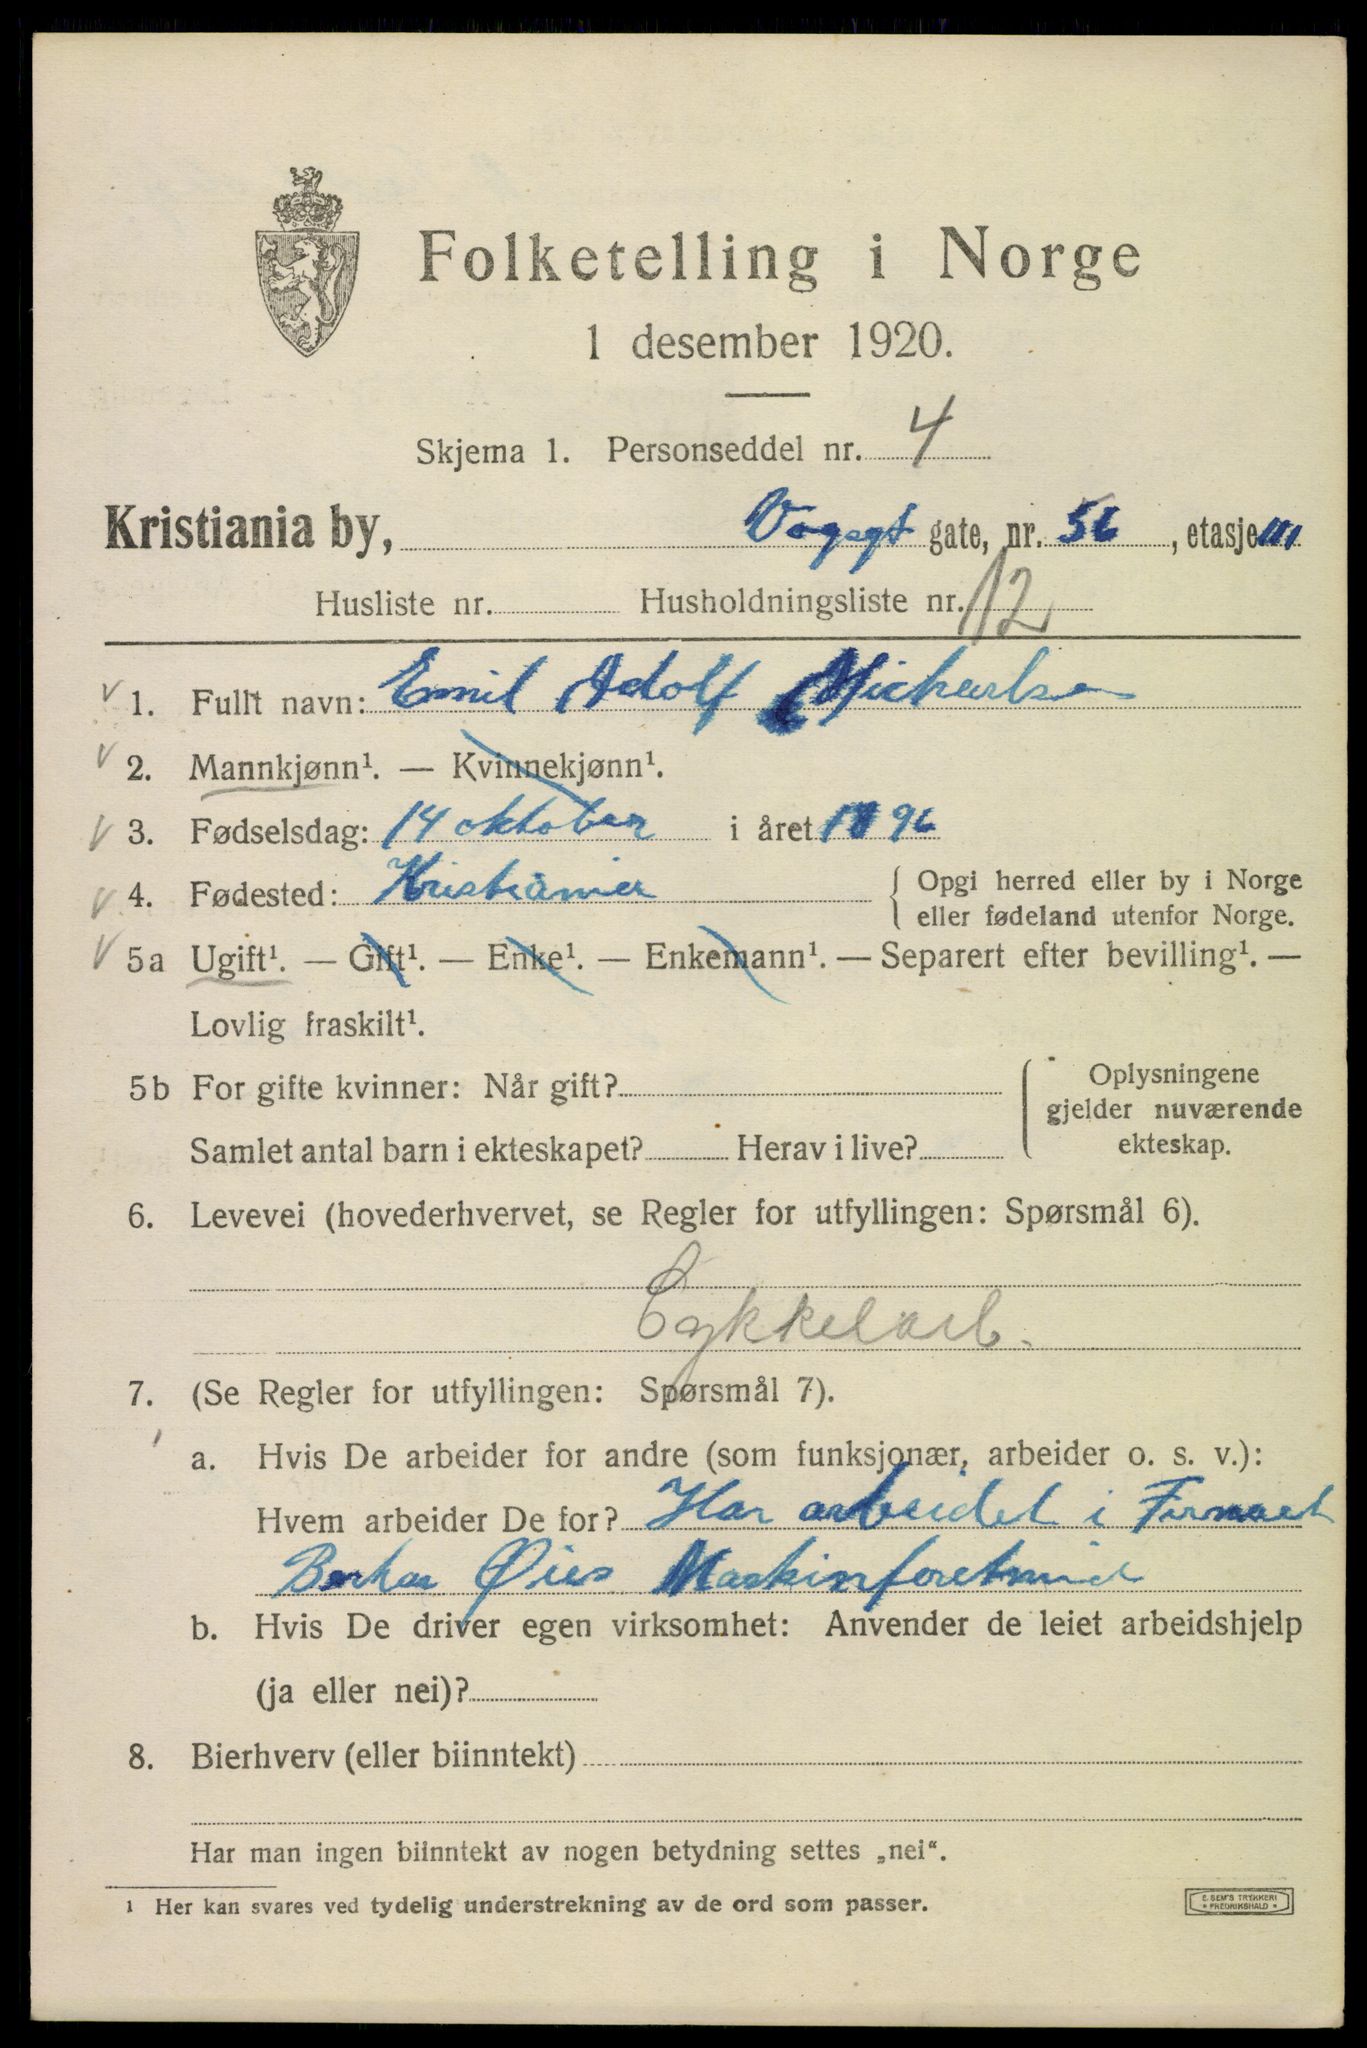 Folketelling i Norge
1 desember 1920.
Skjema 1. Personseddel nr. 4
Kristiania by, Vogsgt gate, nr. 56, etasje III
Husliste nr. Husholdningsliste nr. 12
1. Fullt navn: Emil Adolf Michaelsen
2. Mannkjønn¹. — Kvinnekjønn¹.
3. Fødselsdag: 14 oktober i året 1896
4. Fødested: Kristiania { Opgi herred eller by i Norge
eller fødeland utenfor Norge.
5a Ugift¹. — Gift¹. — Enke¹. — Enkemann¹. — Separert efter bevilling¹. —
Lovlig fraskilt¹.
5b For gifte kvinner: Når gift? { Oplysningene
gjelder nuværende
Samlet antal barn i ekteskapet? Herav i live? ekteskap.
6. Levevei (hovederhvervet, se Regler for utfyllingen: Spørsmål 6).
Cykkelarb.
7. (Se Regler for utfyllingen: Spørsmål 7).
a. Hvis De arbeider for andre (som funksjonær, arbeider o. s. v.):
Hvem arbeider De for? Har arbeidet i Firmaet
Øies
b. Hvis De driver egen virksomhet: Anvender de leiet arbeidshjelp
(ja eller nei)?
8. Bierhverv (eller biinntekt)
Har man ingen biinntekt av nogen betydning settes „nei“.
1 Her kan svares ved tydelig understrekning av de ord som passer.
E. SEM'S TRYKKERI
* FREDRIKSHALD *